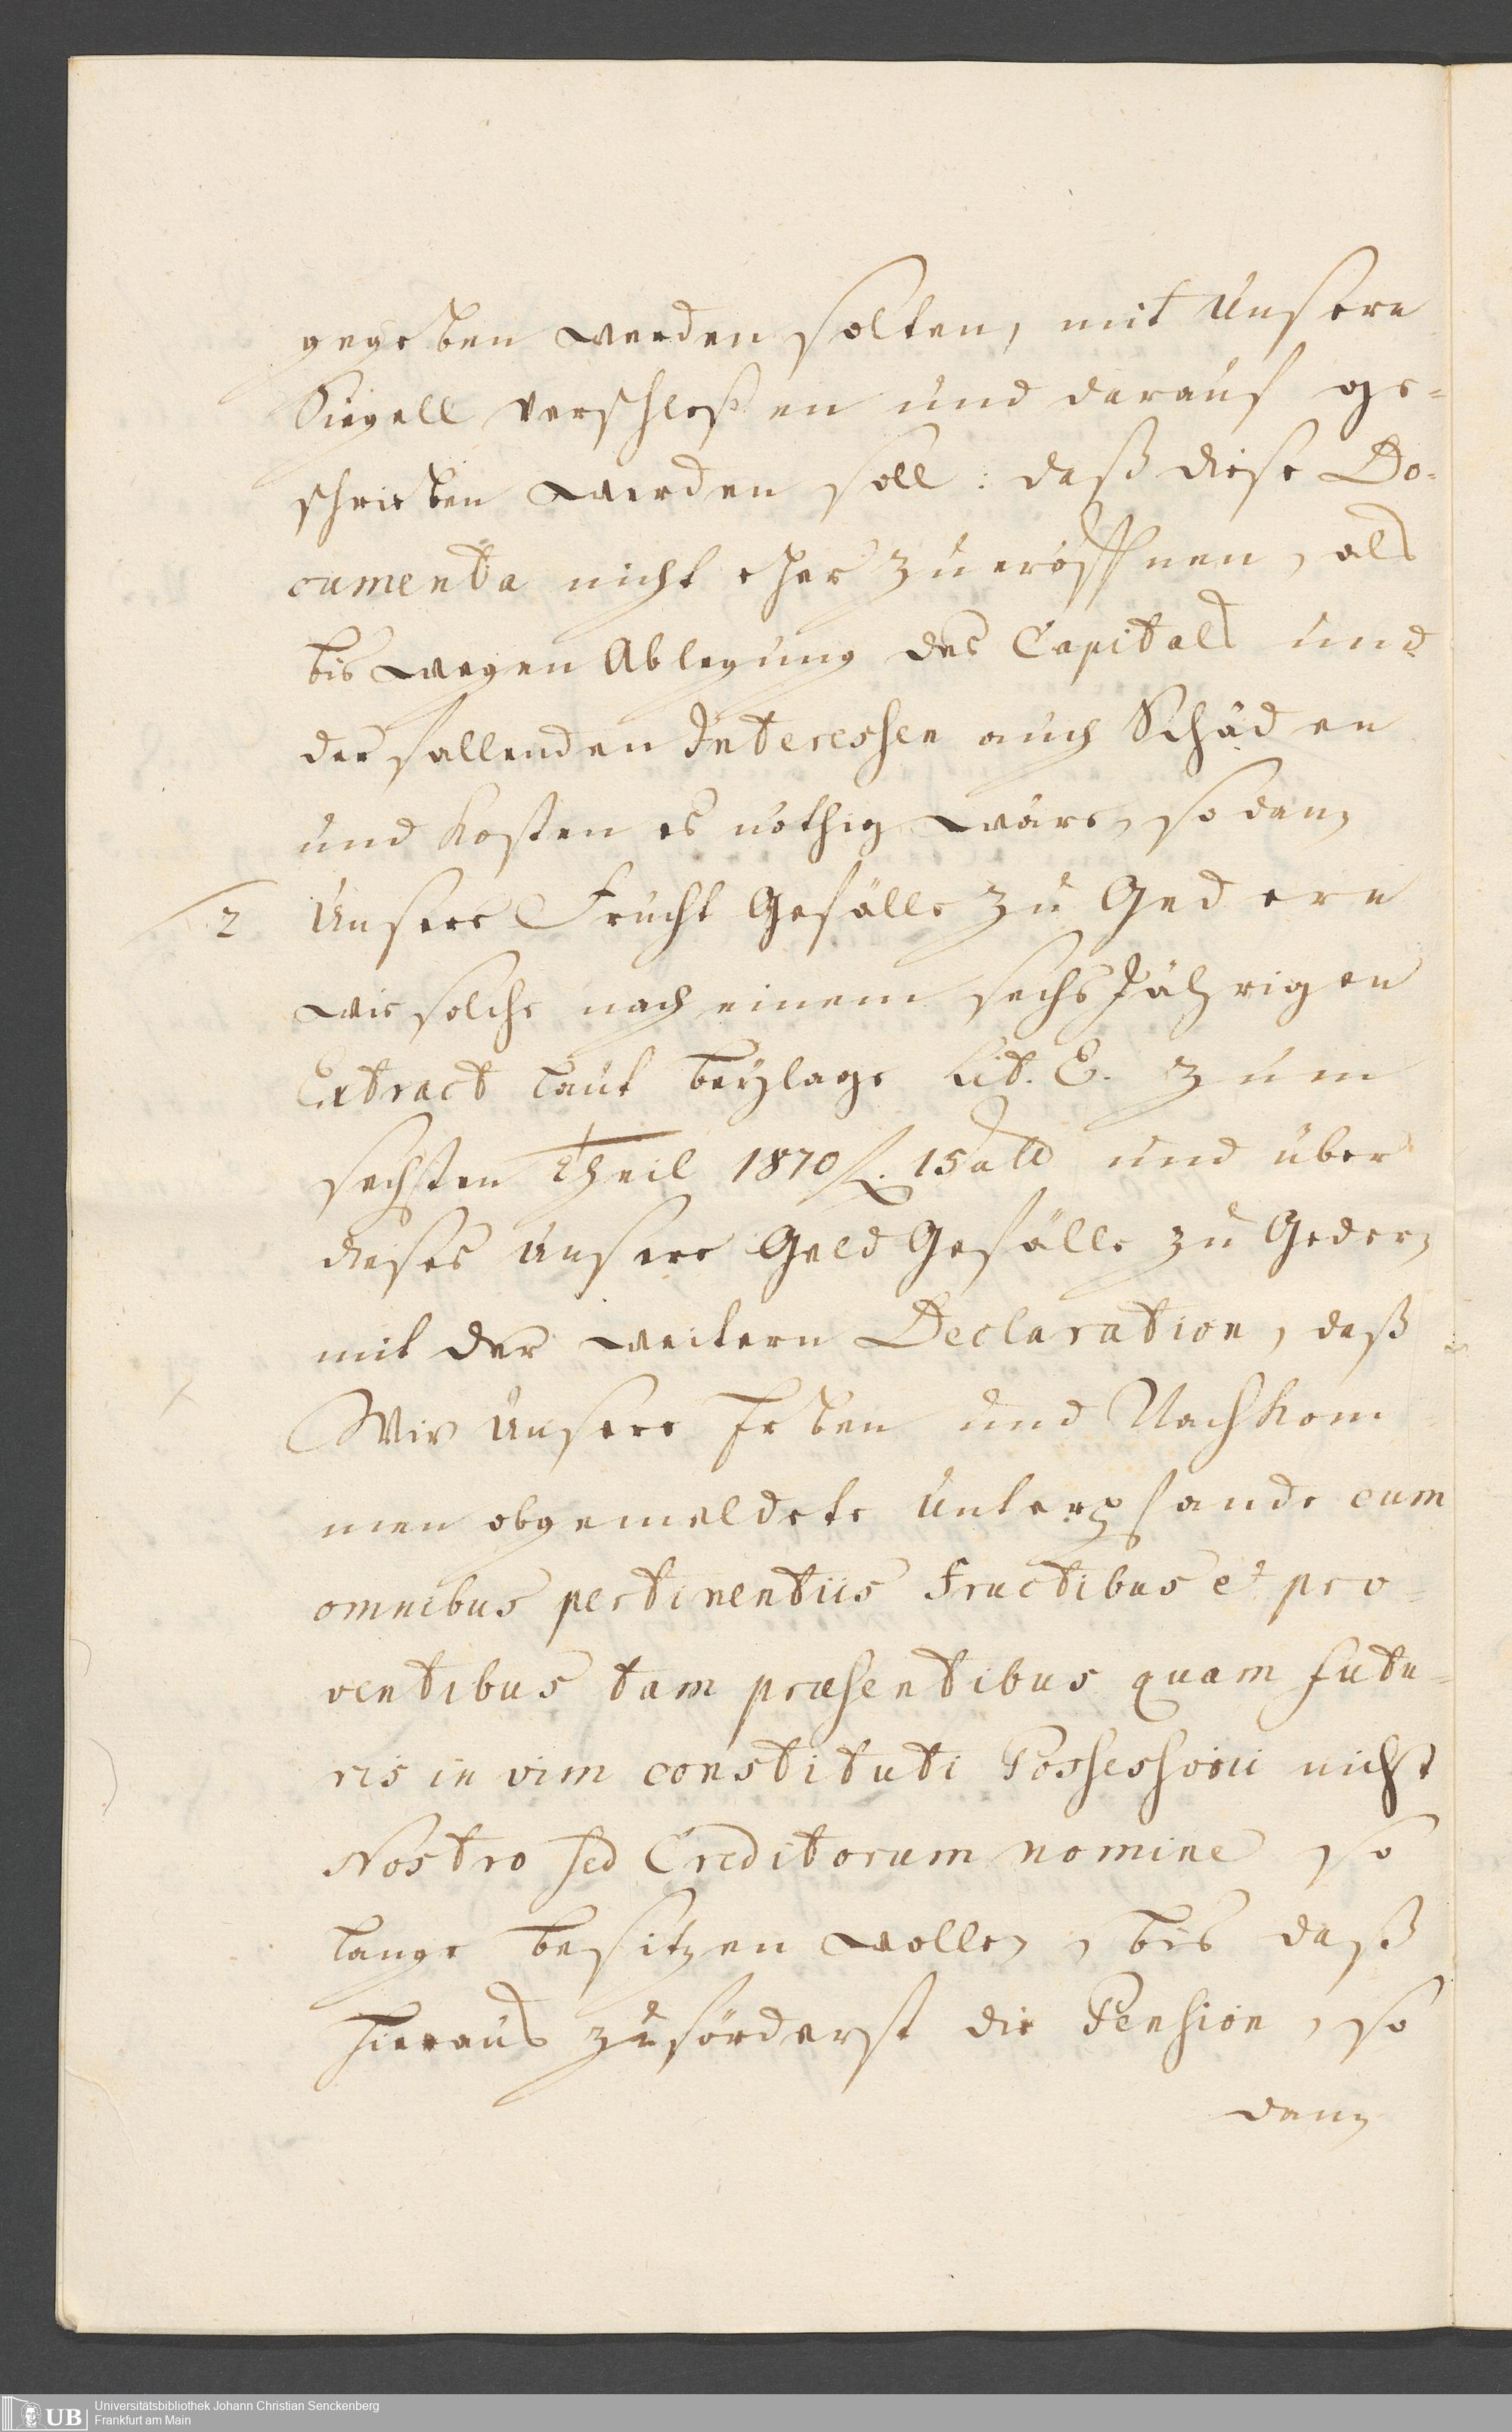 gegeben werden solten, mit Unserm
Siegell verschloßen und darauf ge-
schrieben werden soll: daß diese Do-
cumenta nicht eher zu eröffnen, als
bis wegen Ablegung des Capitals und
der fallenden Interessen auch Schäden
und Kosten es nöthig wäre, sodann
2 Unsere Frucht Gefälle zu Gedern
wie solche nach einem sechs Jährigen
Extract laut beylage Lit. E. zum
sechsten Theil 1870 f. 15 alb und über
dieses Unsere Geld Gefälle zu Gedern
mit der weitern Declaration, daß
Wir Unsere Erben und Nachkom-
men obgemeldete Unterpfande cum
omnibus pertinentiis fructibus et pro-
ventibus tam præsentibus quam futu-
ris in vim constituti Possessorii nicht
Nostro sed Creditorum nomine so
lange besitzen wollen, bis daß
hieraus zuförderst die Pension, so
dann
Universitätsbibliothek Johann Christian Senckenberg
Frankfurt am Main
UB